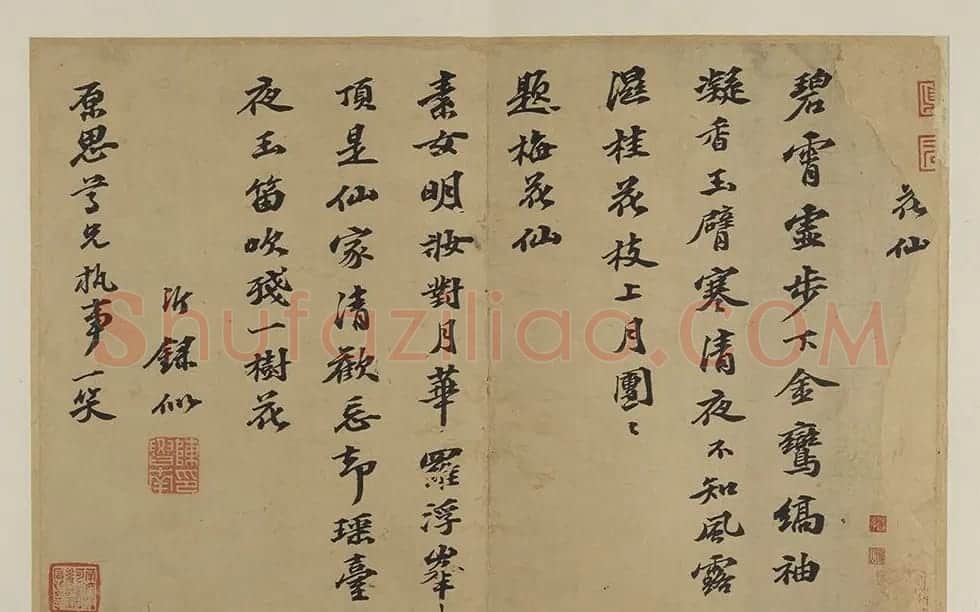 花仙
碧霄虛步下金鸞縞袖
凝香玉臂寒清夜不知風露
濕桂花枝上月團〻
題梅花仙
素女明妝對月華羅浮峯
頂是仙家清歡忘却瑤臺
夜玉笛吹殘一樹花
汝錄似
原思尊兄執事一笑
Shufaziliao.COM